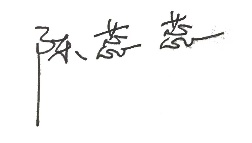 陈蕊蕊